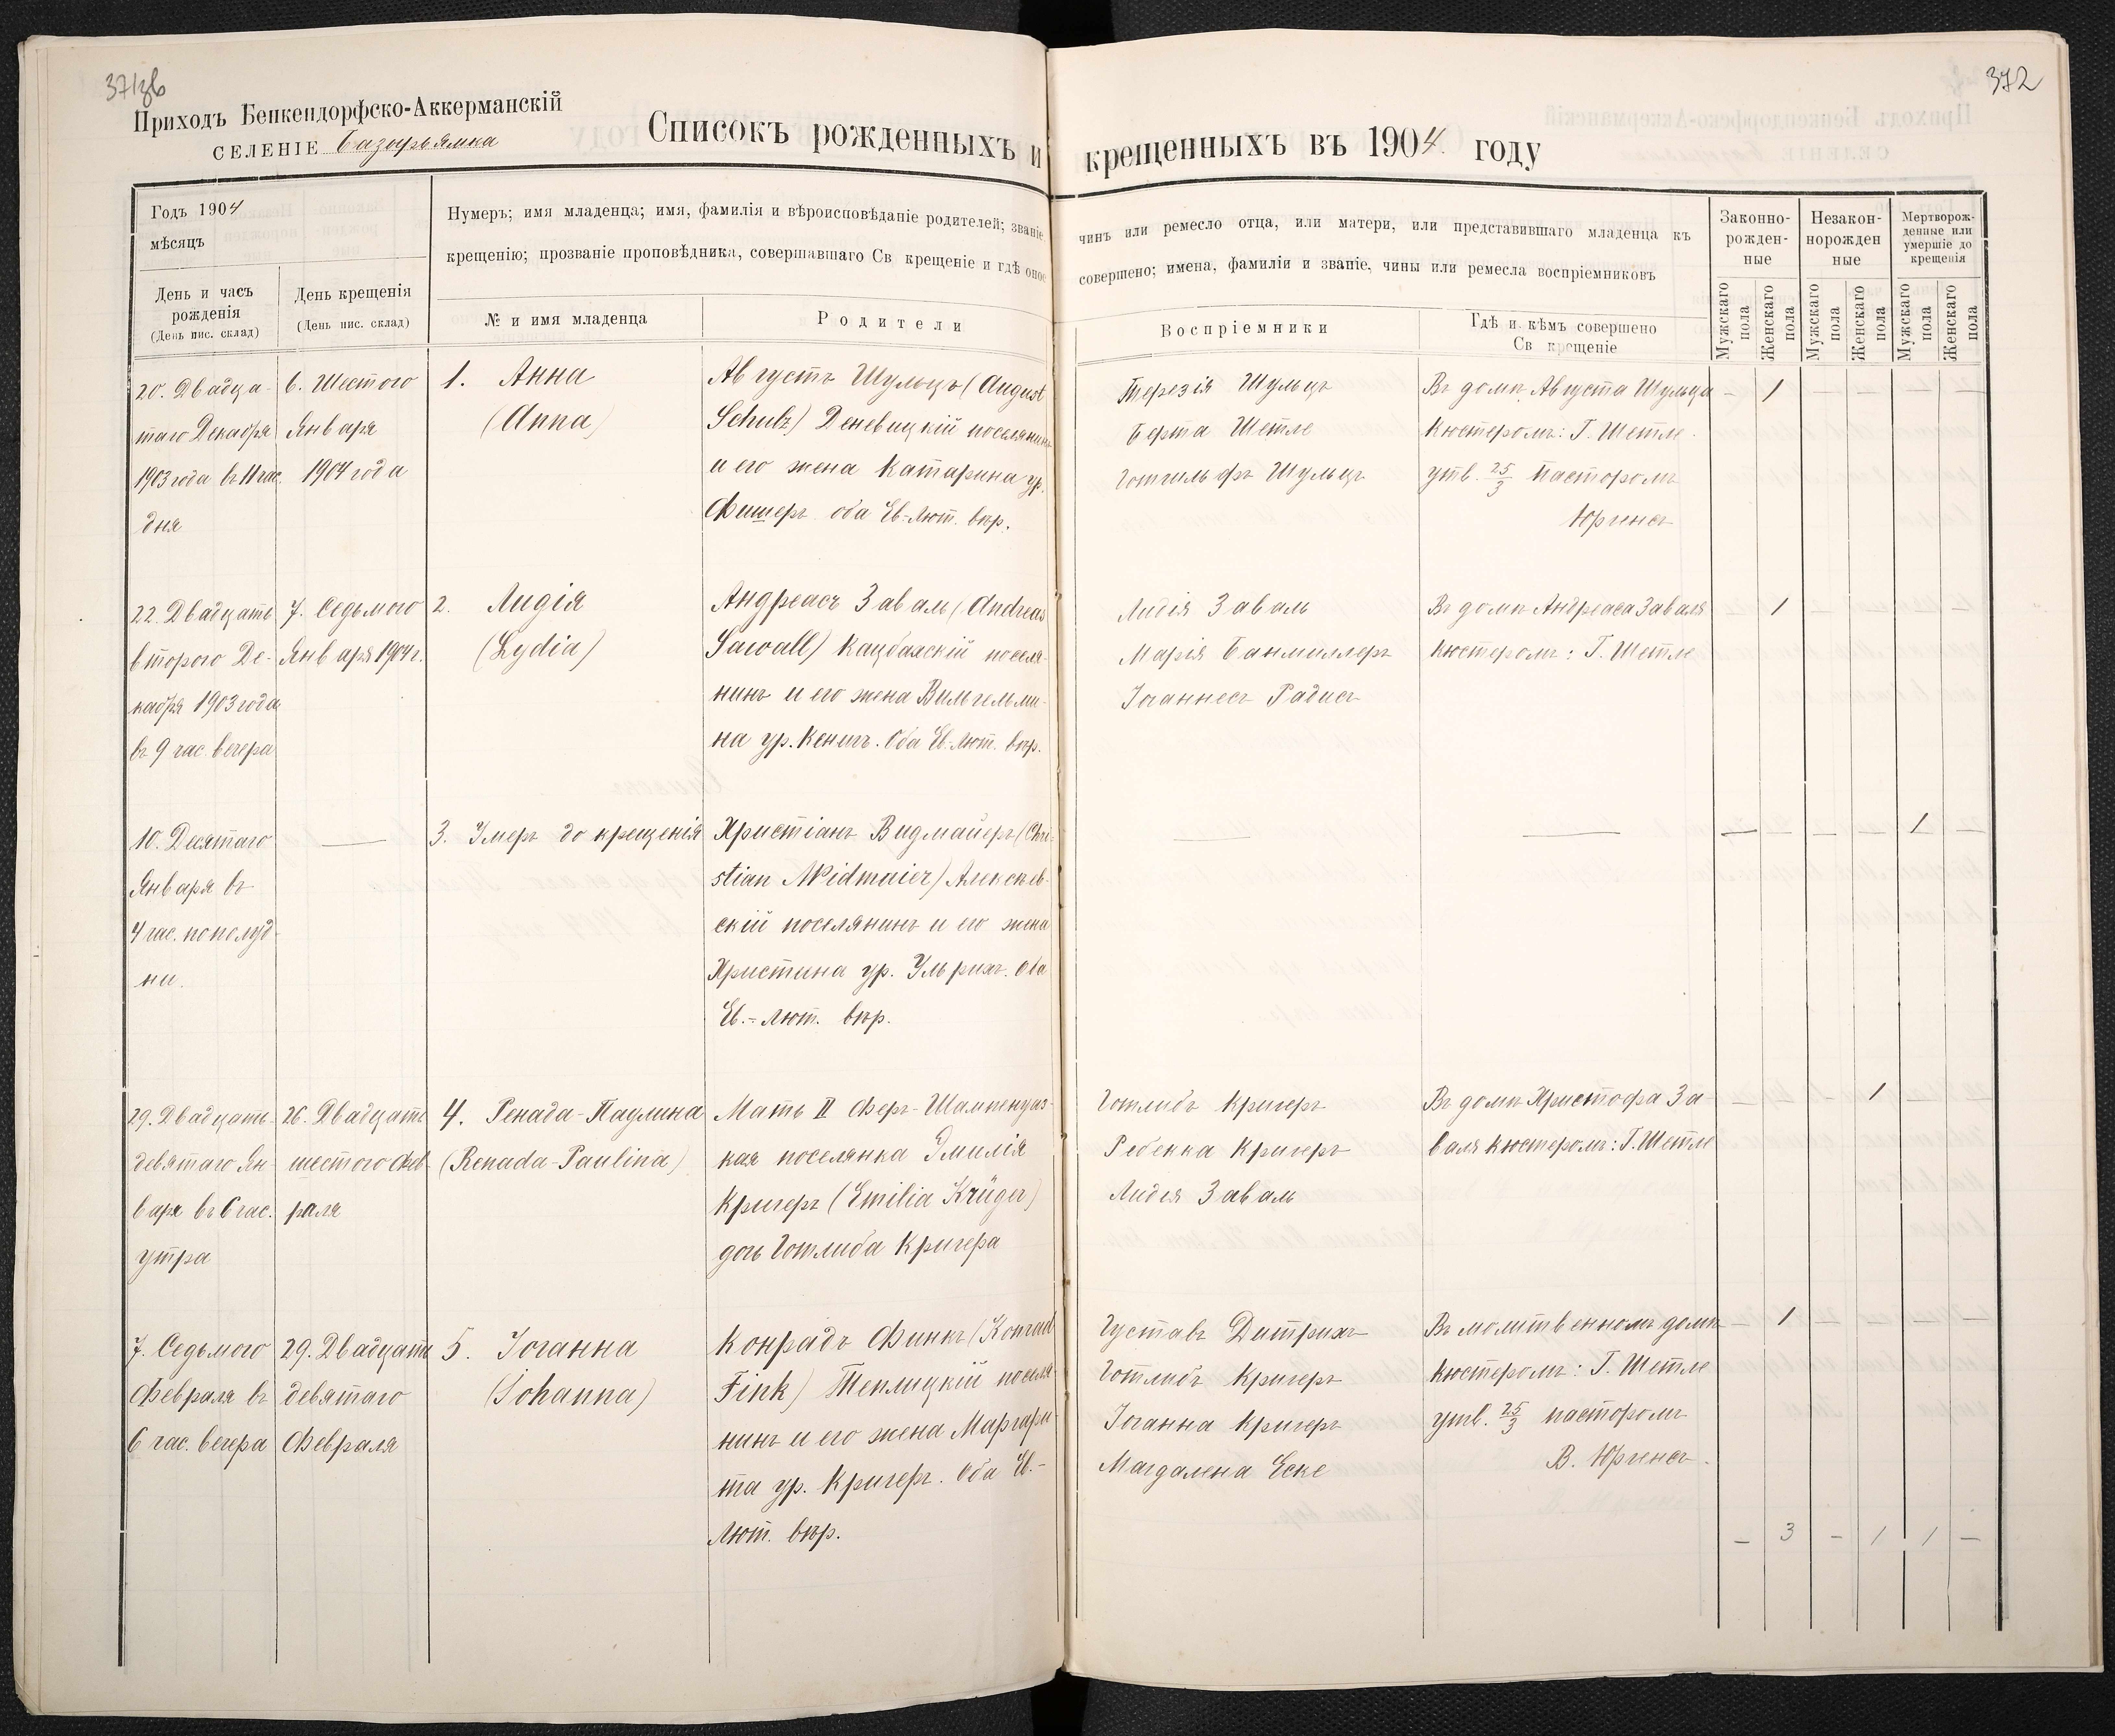 371об
372
Приходъ Бенкендорфско-Аккерманскій
СЕЛЕНІЕ Базарьямка
Списокъ рожденныхъ и крещенныхъ въ 1904 году
Годъ 1904
мѣсяцъ
День и часъ
рожденія
(День пис. склад)
День крещенія
(День пис. склад)
Нумеръ; имя младенца; имя, фамилія и вѣроисповѣданіе родителей; званіе,
крещенію; прозваніе проповѣдника, совершавшаго Св крещеніе и гдѣ оное
№ и имя младенца
Родители
чинъ или ремесло отца, или матери, или представившаго младенца къ
совершено; имена, фамиліи и званіе, чины или ремесла воспріемниковъ
Воспріемники
Гдѣ и кѣмъ совершено
Св крещеніе
Законно-
рожден-
ные
Незакон-
норожден
ные
Мертворож-
денные или
умершіе до
крещенія
Мужскаго пола
Женскаго пола
Мужскаго пола
Женскаго пола
Мужскаго пола
Женскаго пола
20. Двадца-
таго Декабря
1903 года въ 11 час.
дня
6. Шестого
Января
1904 года
1. Анна
(Anna)
Августъ Шульцъ (August
Schulz) Деневицкій поселянинъ
и его жена Катарина ур.
Фишеръ оба Ев.-Лют. вѣр.
Терезія Шульцъ
Берта Шетле
Готгильфъ Шульцъ
Въ домѣ Августа Шульца
кюстеромъ: Г. Шетле.
утв. 25/3 пасторомъ
Юргенсъ
— 1 — — — —
22. Двадцать
второго Де-
кабря 1903 года
въ 9 час. вечера
7. Седьмого
Января 1904 г.
2. Лидія
(Lydia)
Андреасъ Заваль (Andreas
Sawall) Кацбахскій поселя-
нинъ и его жена Вильгельми-
на ур. Кенигъ. Оба Ев.-Лют. вѣр.
Лидія Заваль
Марія Банмиллеръ
Іоганнесъ Радисъ
Въ домѣ Андреаса Заваля
кюстеромъ: Г. Шетле
1 — — — —
10. Десятаго
Января въ
4 час. пополуд-
ни.
—
3. Умеръ до крещенія
Христіанъ Видмайеръ (Chri-
stian Widmaier) Алексѣев-
скій поселянинъ и его жена
Христина ур. Ульрихъ. Оба
Ев.-Лют. вѣр.
—
—
— — — — 1 —
29. Двадцать
девятаго Ян-
варя въ 6 час.
утра
26. Двадцать
шестого Фев-
раля
4. Ренада-Паулина
(Renada-Paulina)
Мать II Фер-Шампенуаз-
кая поселянка Эмилія
Кригеръ (Emilia Krüger)
дочь Готлиба Кригера
Готлибъ Кригеръ
Ребекка Кригеръ
Лидія Заваль
Въ домѣ Христофа За-
валя кюстеромъ: Г. Шетле
— — — 1 — —
7. Седьмого
Февраля въ
6 час. вечера
29. Двадцать
девятаго
Февраля
5. Іоганна
(Johanna)
Конрадъ Финкъ (Konrad
Fink) Теплицкій поселя-
нинъ и его жена Маргари-
та ур. Кригеръ. Оба Ев.-
Лют. вѣр.
Густавъ Дитрихъ
Готлибъ Кригеръ
Іоганна Кригеръ
Магдалена Еске
Въ молитвенномъ домѣ
кюстеромъ: Г. Шетле
утв. 25/3 пасторомъ
В. Юргенсъ.
— 1 — — — —
— 3 — 1 1 —